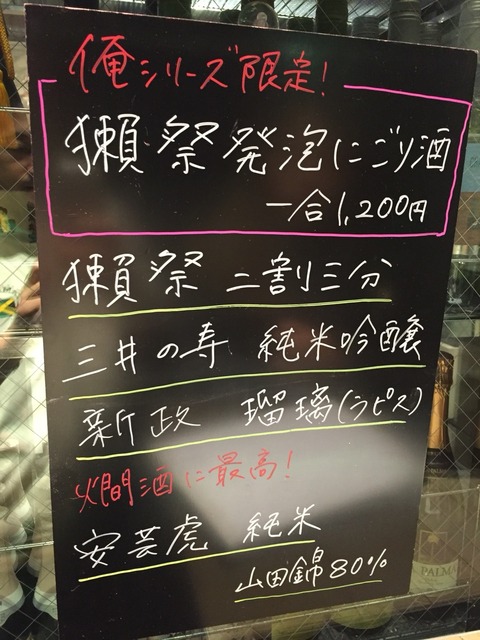 俺シリーズ限定!
獺祭発泡にごり酒
一合1,200円
獺祭 二割三分
三井の寿 純米吟醸
新政 瑠璃(ラピス)
火間酒に最高!
安芸虎 純米
山田錦80%
PALMA